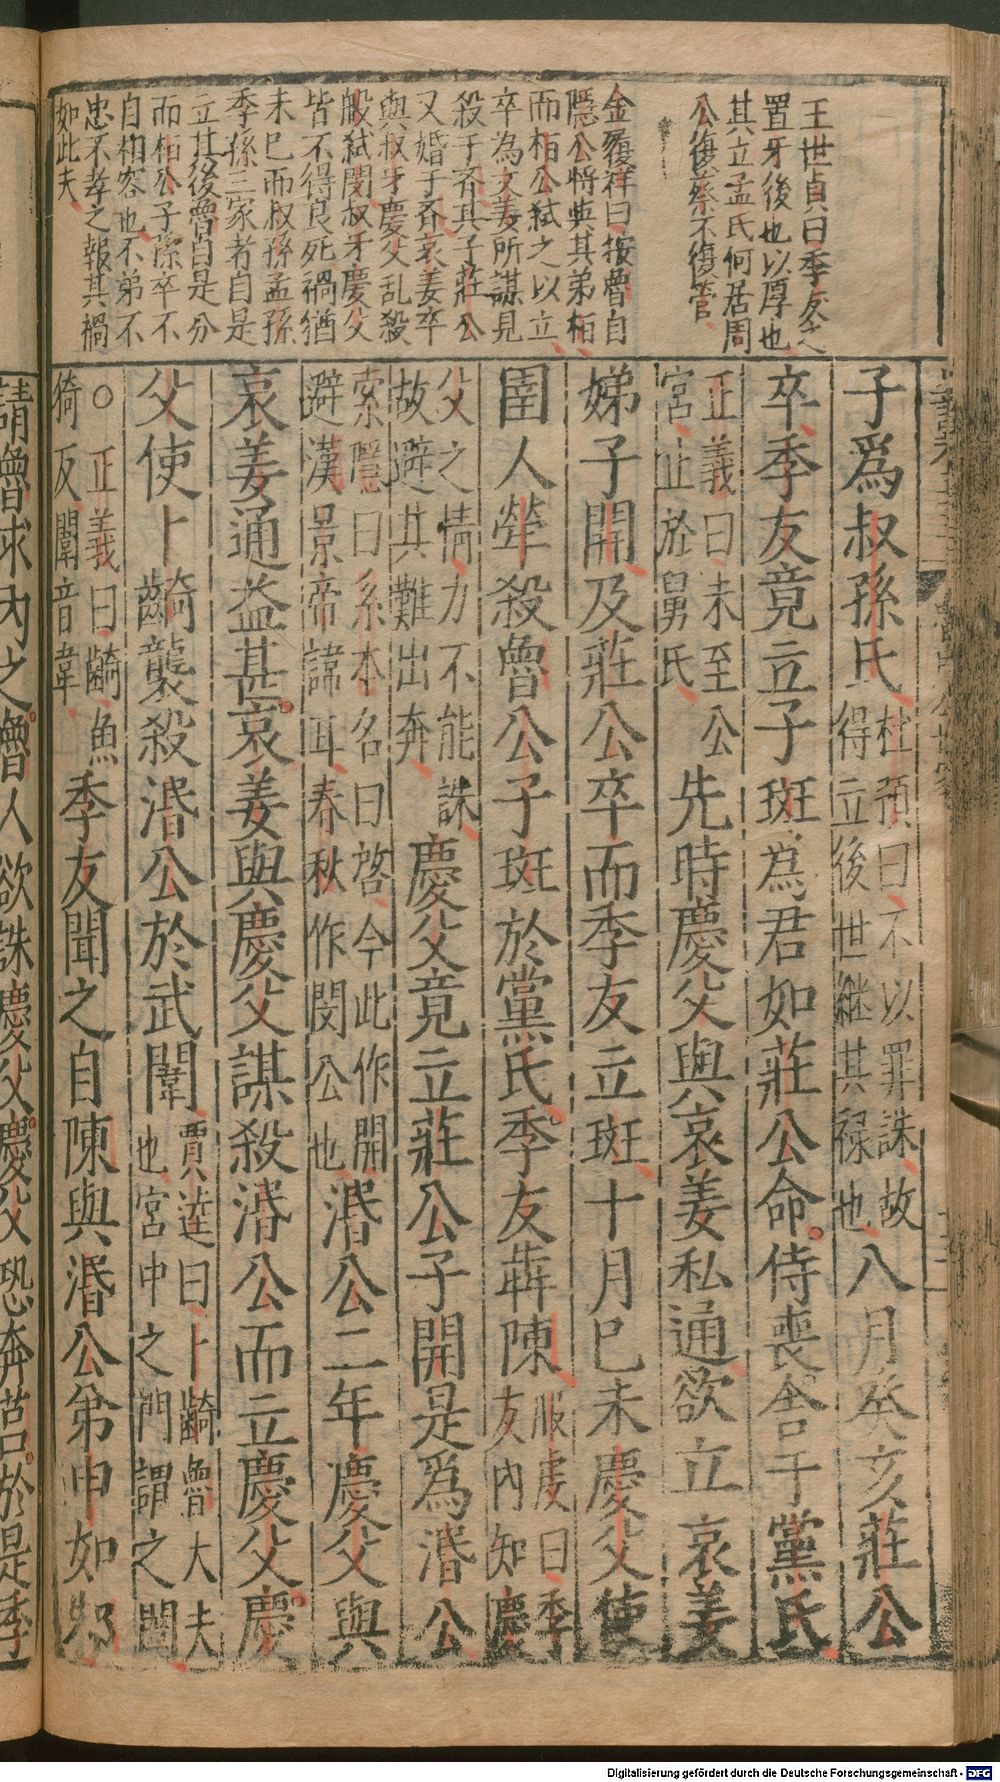 王世貞曰季友之
置牙後也以厚也
其立孟氏何居周
公復蔡不復管
金履祥曰按魯自
隱公將與其弟桓
而桓公弑之以立
卒為文姜所謀見
殺于齊其子莊公
又婚于齊哀姜卒
與叔牙慶父乱殺
般弑閔叔牙慶父
皆不得良死禍猶
未已而叔孫孟孫
季孫三家者自是
立其後魯自是分
而桓公子孫卒不
自相容也不弟不
忠不孝之報其禍
如此夫
子爲叔孫氏
杜預曰不以罪誅故
得立後世継其祿也
八月癸亥莊公
卒季友竟立子斑為君如莊公命侍喪舍于黨氏
正義曰未至公
宮止於舅氏
先時慶父與哀姜私通欲立哀姜
娣子開及莊公卒而季友立斑十月已未慶父使
圉人犖殺魯公子斑於黨氏季友犇陳
服虔曰季
友內知慶
父之情力不能誅
故避其難出奔
慶父竟立莊公子開是爲湣公
索隱曰系本名曰啓今此作開
避漢景帝諱耳春秋作閔公也
湣公二年慶父與
哀姜通益甚哀姜與慶父謀殺湣公而立慶父慶
父使卜齮襲殺湣公於武闈
賈逵曰卜齮魯大夫
也宮中之門謂之闈
○正義曰齮魚
猗反闈音韋
季友聞之自陳與湣公弟申如邾
請魯求內之魯人欲誅慶父慶父恐奔莒於是季
Digitalisierung gefördert durch die Deutsche Forschungsgemeinschaft - DFG